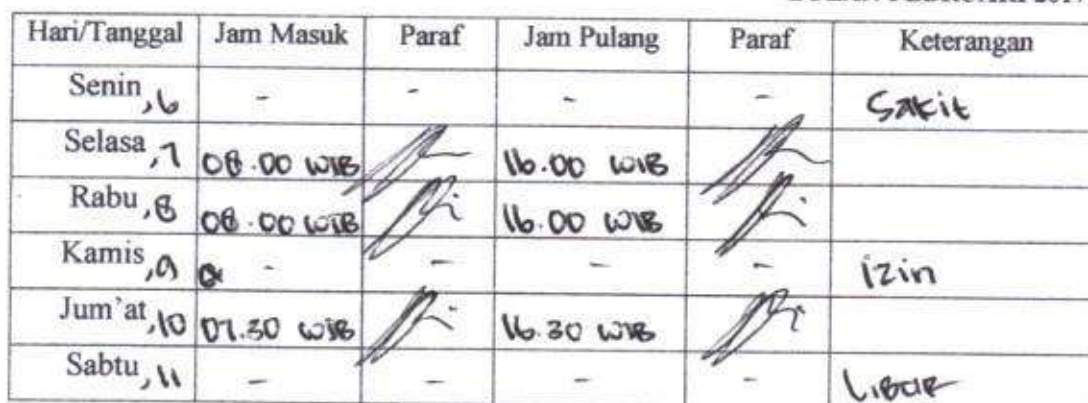 Hari/Tanggal Jam Masuk Paraf Jam Pulang Paraf Keterangan
Senin, 6 - - - - Sakit
Selasa, 7 08.00 WIB 16.00 WIB
Rabu, 8 08.00 WIB 16.00 WIB
Kamis, 9 - - - - izin
Jum'at, 10 07.30 WIB 16.30 WIB
Sabtu, 11 - - - - Libur